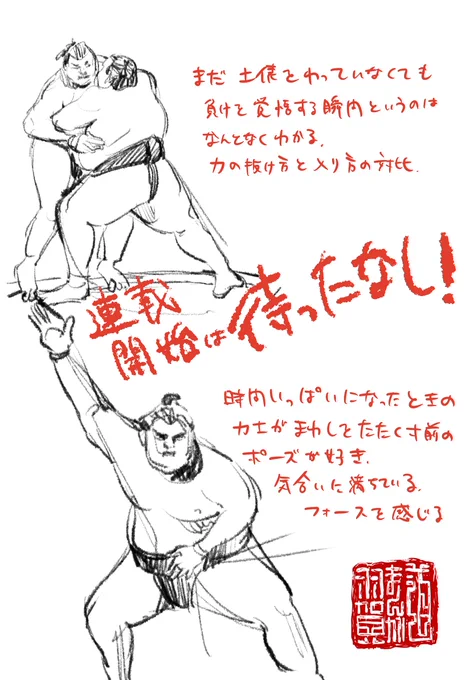 まだ 土俵をわっていなくても
負けを覚悟する瞬間というのは
なんとなくわかる.
力の抜け方と入り方の対比.
連載
開始は待ったなし!
時間いっぱいになったときの
力士がまわしをたたく寸前の
ポーズが好き.
気合いに満ちている.
フォースを感じる